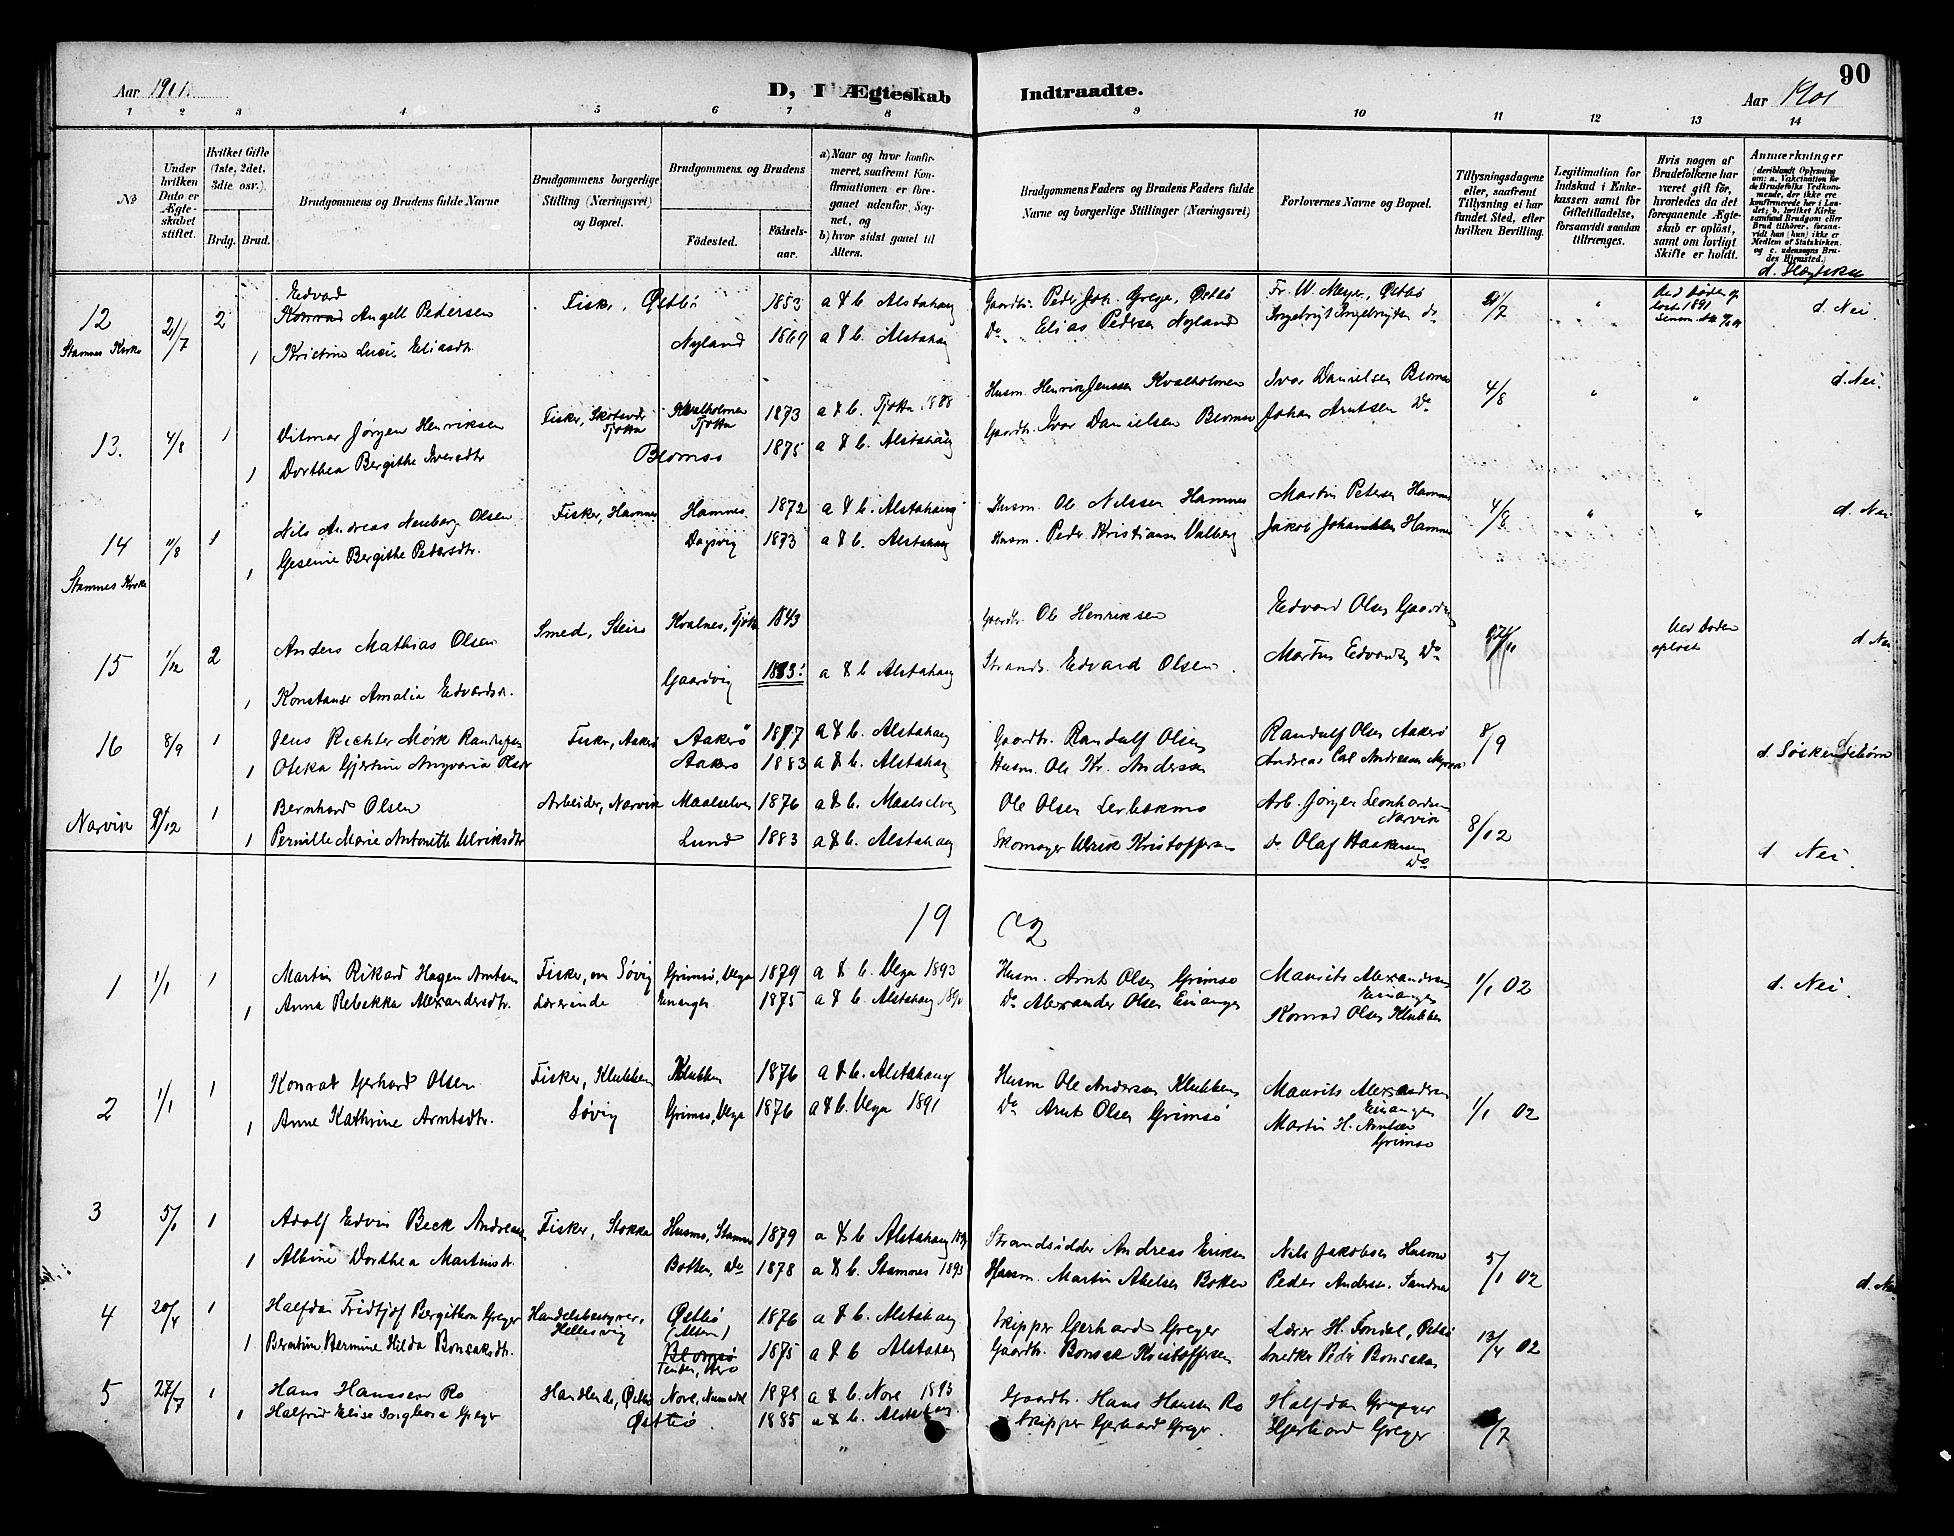 90
Aar 1901. D, I Ægteskab Indtraadte. Aar 1901
1 2 3 4 5 6 7 8 9 10 11 12 13 14
No
Under hvilken Dato er Ægteskabet stiftet.
Hvilket Gifte (1ste, 2det, 3die osv.).
Brdg. Brud.
Brudgommens og Brudens fulde Navne
Brudgommens borgerlige Stilling (Næringsvei) og Bopæl.
Brudgommens og Brudens
Fødested.
Fødselsaar.
a) Naar og hvor konfirmeret, saafremt Konfirmationen er foregaaet udenfor Sognet, og
b) hvor sidst gaaet til Alters.
Brudgommens Faders og Brudens Faders fulde Navne og borgerlige Stillinger (Næringsvei)
Forlovernes Navne og Bopæl.
Tillysningsdagene eller, saafremt Tillysning ei har fundet Sted, efter hvilken Bevilling.
Legitimation for Indskud i Enkekassen samt for Giftetilladelse, forsaavidt saadan tiltrænges.
Hvis nogen af Brudefolkene har været gift før, hvorledes da det foregaaende Ægteskab er opløst, samt om lovligt Skifte er holdt.
Anmærkninger (deriblandt Oplysning om: a. Vakcination for de Brudefolks Vedkommende, der ikke ere konfirmerede her i Landet; b. hvilket Kirkesamfund Brudgom eller Brud tilhører, forsaavidt han (hun) ikke er Medlem af Statskirken, og c. udensogns Brudes Hjemsted.)
12 21/7 2 Edvard Angell Pedersen Fisker, Østbø 1853 a & b. Alstahaug Fr. W. Meyer, Østbø d. Nei.
Stamnes Kirke 1 Kristine Lusie Eliasdtr. Nyland 1869 a & b. Alstahaug Do Elias Pedersen Nyland Ingebrigt Ingebrigtsen do
13. 4/8 1 Ditmar Jørgen Henriksen Fisker, Tjøtta Kvalholmen Tjøtta 1873 a & b. Tjøtta 1888 Husm. Henrik Jenssen Kvalholmen Ivar Danielsen Blomsø 4/8 " " d. Nei.
1 Dorthea Bergithe Iversdtr Blomsø 1875 a & b. Alstahaug Gaardbr. Ivar Danielsen Blomsø Johan Arntsen Do
14 11/8 1 Nils Andreas Neuberg Olsen Fisker, Hamnes Hamnes 1872 a & b. Alstahaug Husm. Ole Nilssen Hamnes Martin Petersen Hamnes 4/8 " " d. Nei
Stamnes Kirke 1 Gesine Bergithe Pedersdtr. Dagsvig 1873 a & b. Alstahaug Husm. Peder Kristiansen Valberg Jakob Johansen Hamnes
15 1/12 2 Anders Mathias Olsen Smed, Steiro Kvalnes, Tjøtta 1843 Gaardbr. Ole Henriksen Edvard Olsen Gaardvig 27/11 Ved Døden opløst d. Nei
1 Konstanse Amalia Edvardsdtr. Gaardvig 1883! a & b. Alstahaug Strands. Edvard Olsen Martin Edvardsen Do
16 8/9 1 Jens Richter Mørk Randulfsen Fisker, Aakerø Aakerø 1877 a & b. Alstahaug Gaardbr. Randulf Olsen Randulf Olsen Aakerø 8/9 d. Søskendebørn
1 Oleka Gjertine Angvaria Olsdtr Aakerø 1883 a & b. Alstahaug Husm. Ole Kr. Andersen Andreas Carl Andreasen
Narvik 9/12 1 Bernhard Olsen Arbeider, Narvik Maalselven 1876 a & b. Maalselven Ole Olsen Lerbakmo Arb. Jørgen Leonhardsen Narvik 8/12
1 Pernille Marie Antonette Ulriksdtr Lund 1883 a & b. Alstahaug Skomager Ulrik Kristoffersen do Olaf Haakensen Do d. Nei.
19 02
1 1/1 1 Martin Rikard Hagen Arntsen Fisker, om Søvig Grimsø, Vega 1879 a & b. Vega 1893 Husm. Arnt Olsen Grimsø Maurits Alexandersen Einangen 1/1 02 d. Nei.
1 Anna Rebekka Alexandersdtr. Lærerinde Einangen 1875 a & b. Alstahaug 1890 Do Alexander Olsen Einangen Konrad Olsen Klubben
2 1/1 1 Konrad Gerhard Olsen Fisker, Klubben Klubben 1876 a & b. Alstahaug Husm Ole Andersen Klubben Maurits Alexandersen Einangen 1/1 02
1 Anne Kathrine Arntsdtr. Søvig Grimsø, Vega 1876 a & b. Vega 1891 Do Arnt Olsen Grimsø Martin H. Arntsen Grimsø
3 5/1 1 Adolf Edvin Beck Andreasen Fisker, Stokka Husmo, Stamnes 1879 a & b Alstahaug Strandsidder Andreas Eriksen Nils Jakobsen Husmo 5/1 02
1 Albine Dorthea Martinsdtr. Botten, do 1878 a & b. Stamnes 1893 Husm. Martin Akelsen Botten Peder Andersen Sandnes d. Nei
4 20/4 1 Halfdan Fridtjof Bergithon Greger Handelsbestyrer, Hellesvig Østbø (Alsten) 1876 a & b. Alstahaug Skipper Gerhard Greger Lærer H. Fondal, Østbø 13/4 02
1 Berntine Hermine Hilda Bonsaksdtr. Blomsø 1875 a & b Alstahaug Gaardbr. Bonsak Kristoffersen Snedker Peder Bonsaksen
5 27/7 1 Hans Hanssen Ro Handlende, Østbø Nore, Numedal 1878 a & b. Nore 1893 Gaardbr. Hans Hanssen Ro Halfdan Greger /7
1 Halfrid Elise Ingeborg Greger Østbø 1885 a & b. Alstahaug. Skipper Gerhard Greger. Gerhard Greger